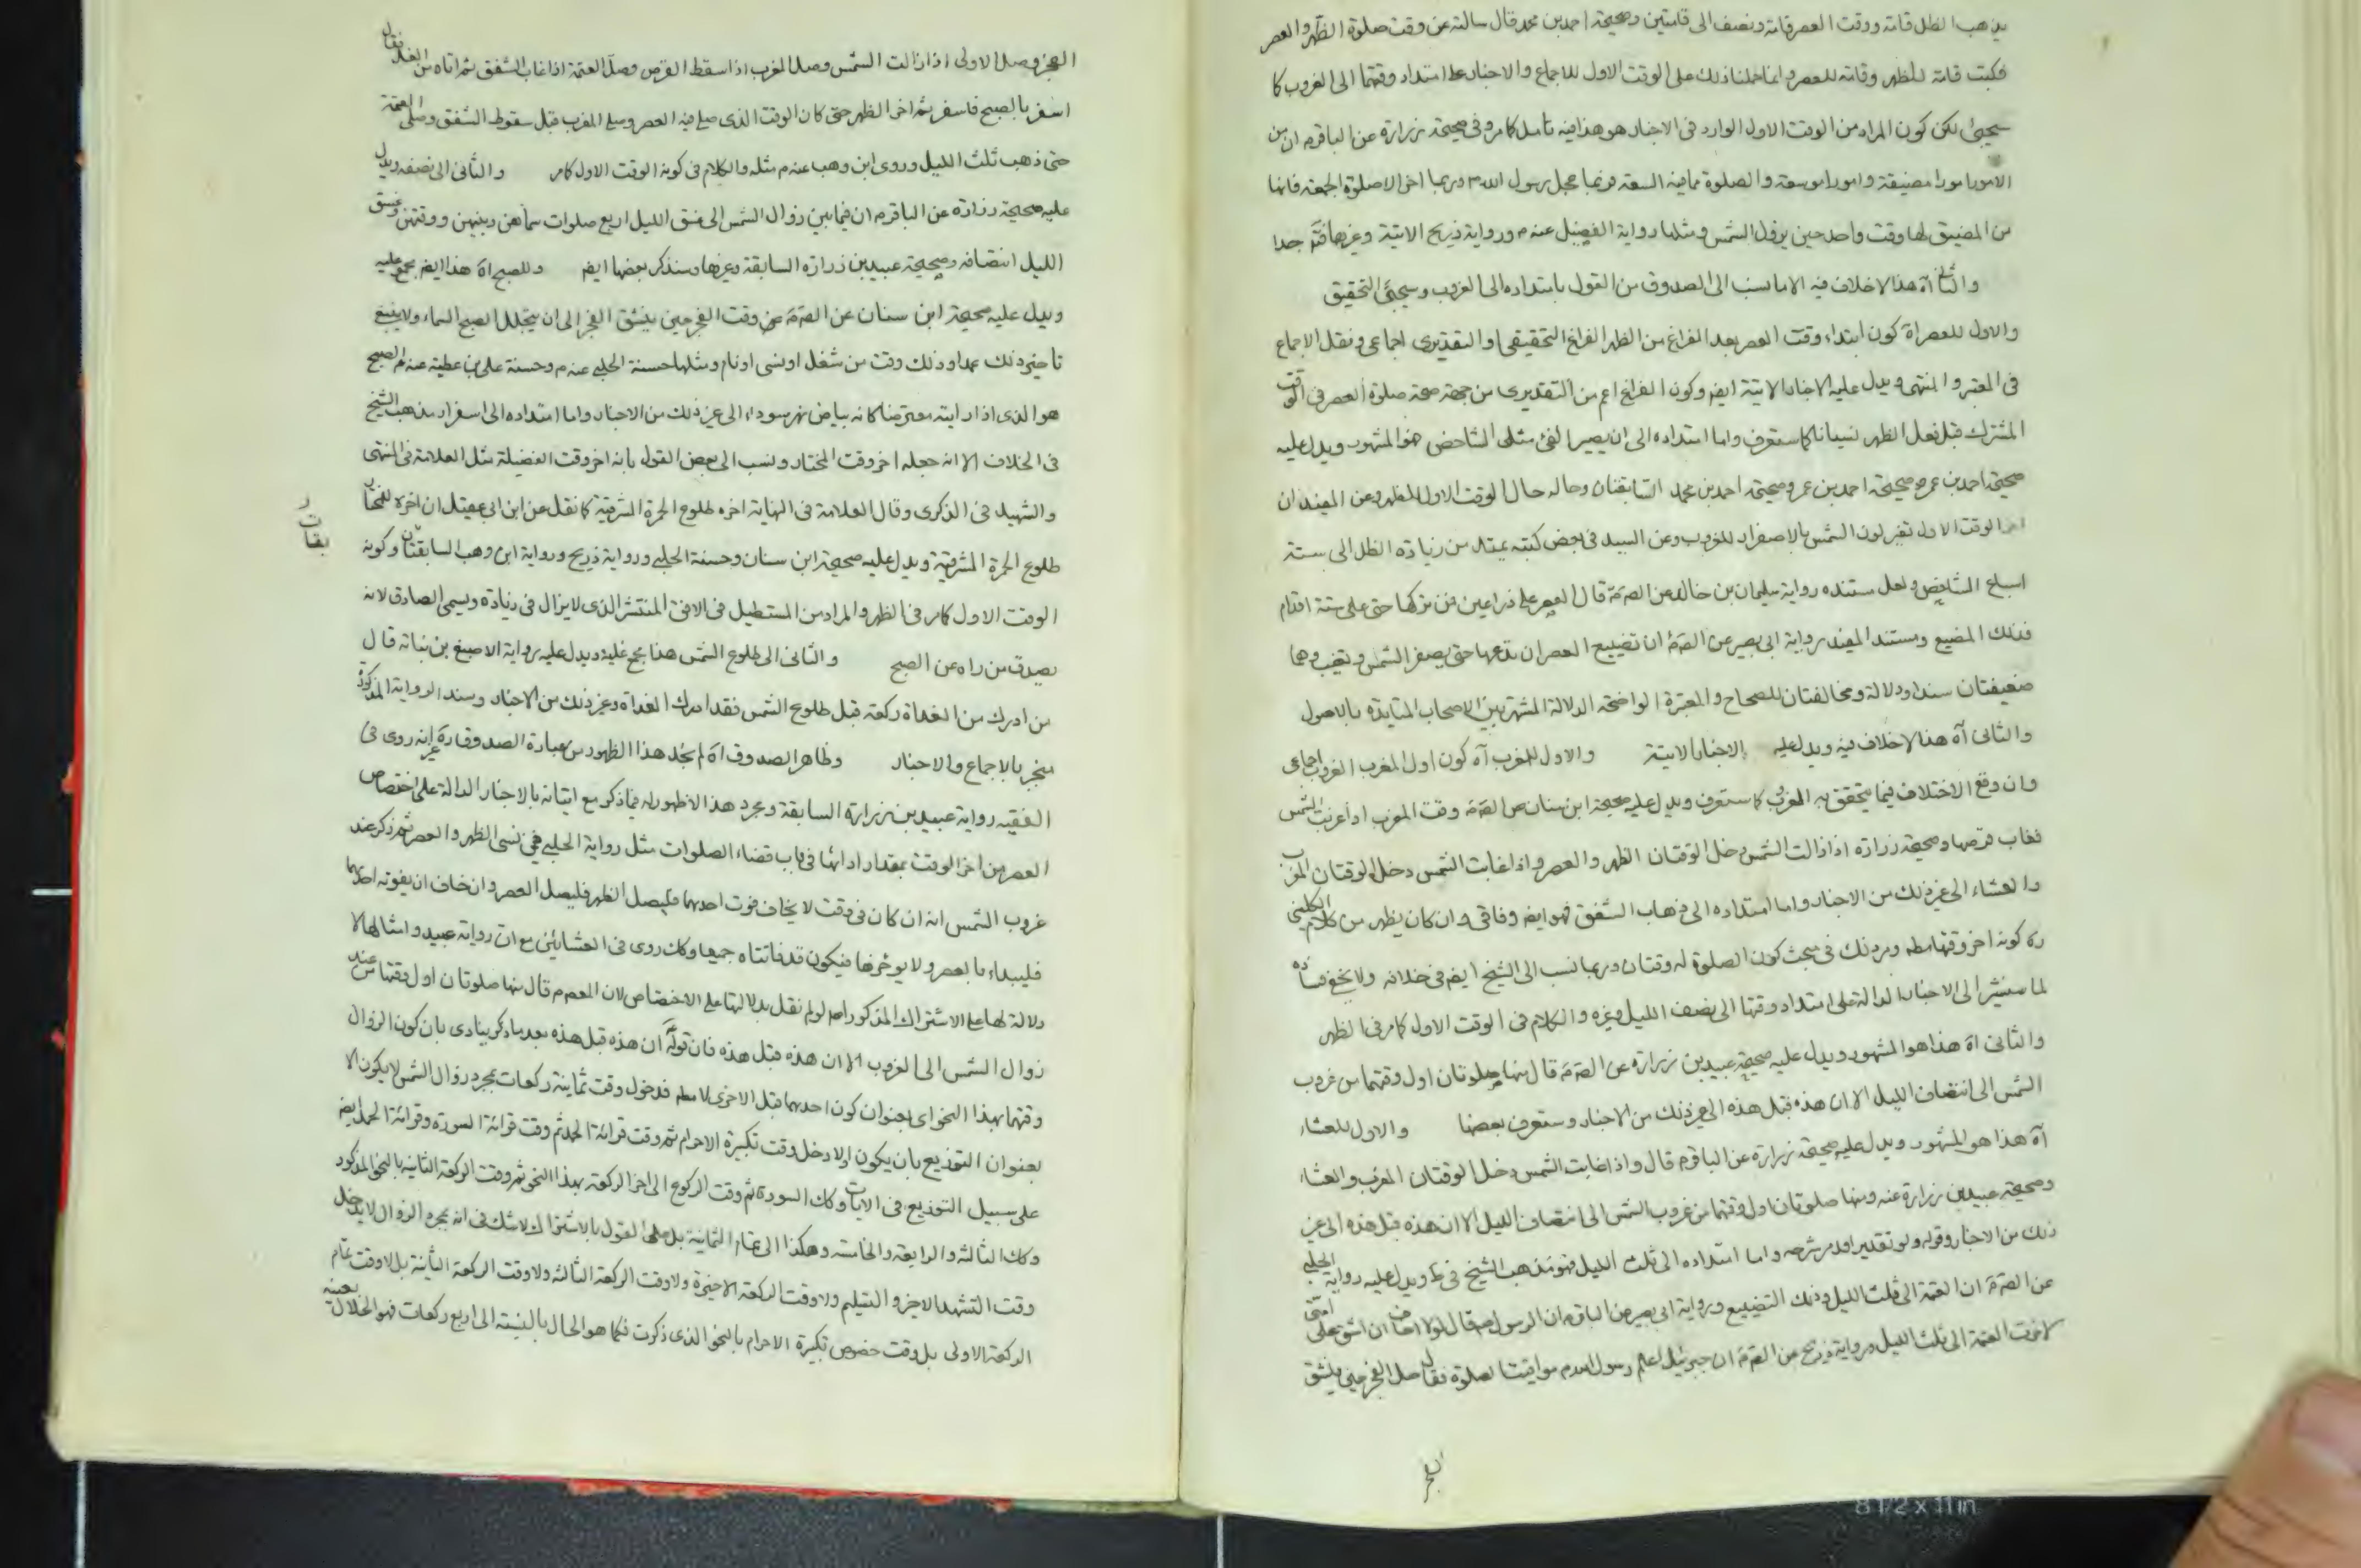 يذهب الظل قامة ووقت العصر قامة ونصف الى قامتين وصحيحة احمد بن محمد قال سالته عن وقت صلوة الظهر والعصر
فكتب قامة للظهر وقامة للعصر وانما حملنا ذلك على الوقت الاول للاجماع والاخبار على امتداد وقتهما الى الغروب كا
سيجئ لكن كون المراد من الوقت الاول الوارد في الاخبار هو هذا فيه تامل كامر وفي صحيحة زرارة عن الباقر م ان من
الامور امورا مضيقة وامورا موسعة والصلوة مما فيه السعة فربما عجل رسول الله ص وربما اخر الا صلوة الجمعة فانها
من المضيق لها وقت واحد حين يزول الشمس ومثلها رواية الفضيل عنه م ورواية ذريح الاتية وغيرها فتم جدا
والثاني آه هذا لا خلاف فيه الا ما نسب الى الصدوق من القول بامتداده الى الغروب وسيجئ التحقيق
والاول للعصر آه كون ابتداء وقت العصر بعد الفراغ من الظهر الفراغ التحقيقي او التقديري اجماعي ونقل الاجماع
في المعتبر والمنتهى ويدل عليه الاخبار الاتية ايضا وكون الفراغ اعم من التقديري من جهة صحة صلوة العصر في الوقت
المشترك قبل فعل الظهر نسيانا كا ستعرف واما امتداده الى ان يصير الفئ مثلى الشاخص فهو المشهور ويدل عليه
صحيحة احمد بن عمر وصحيحة احمد بن محمد السابقتان وحاله حال الوقت الاول للظهر وعن المفيد ان
اخر الوقت الاول تغير لون الشمس بالاصفرار للغروب وعن السيد في بعض كتبه يمتد من زيادة الظل الى ستة
اسباع الشاخص ولعل مستنده رواية سليمان بن خالد عن الصم قال العصر على ذراعين فمن تركها حتى على ستة اقدام
فذلك المضيع ومستند المفيد رواية ابي بصير عن الصم ان تضييع العصر ان تدعها حتى يصفر الشمس وتغيب وهما
ضعيفتان سندا ودلالة ومخالفتان للصحاح والمعتبرة الواضحة الدلالة المشتهرة بين الاصحاب المتايدة بالاصول
والثاني آه هذا لا خلاف فيه ويدل عليه الاخبار الاتية والاول للمغرب آه كون اول المغرب الغروب اجماعي
وان وقع الاختلاف فيما يتحقق به الغروب كا ستعرف ويدل عليه صحيحة ابن سنان عن الصم وقت المغرب اذا غربت الشمس
فغاب قرصها وصحيحة زرارة اذا زالت الشمس دخل الوقتان الظهر والعصر واذا غابت الشمس دخل الوقتان المغرب
والعشاء الى غير ذلك من الاخبار واما امتداده الى ذهاب الشفق فهو ايضا وفاقي وان كان يظهر من كلام الكليني
ره كونه اخر وقتها مطم ومر ذلك في مبحث كون الصلوة له وقتان وربما نسب الى الشيخ ايضا في خلافه ولا يخفى فساده
لما سنشير الى الاخبار الدالة على امتداد وقتها الى نصف الليل وغيره والكلام في الوقت الاول كامر في الظهر
والثاني آه هذا هو المشهور ويدل عليه صحيحة عبيد بن زرارة عن الصم قال منها صلوتان اول وقتهما من غروب
الشمس الى انتصاف الليل الا ان هذه قبل هذه الى غير ذلك من الاخبار وستعرف بعضها والاول للعشاء
آه هذا هو المشهور ويدل عليه صحيحة زرارة عن الباقر م قال واذا غابت الشمس دخل الوقتان المغرب والعشاء
وصحيحة عبيد بن زرارة عنه ومنها صلوتان اول وقتهما من غروب الشمس الى انتصاف الليل الا ان هذه قبل هذه الى غير
ذلك من الاخبار وقوله ولو تقديرا قد مر شرحه واما امتداده الى ثلث الليل فهو مذهب الشيخ في ويدل عليه رواية الحلبي
عن الصم ان العتمة الى ثلث الليل وذلك التضييع ورواية ابي بصير عن الباقر م ان الرسول ص قال لولا اخاف ان اشق على امتى
لاخرت العتمة الى ثلث الليل ورواية ذريح عن الصم ان جبرئيل اعلم رسول الله ص مواقيت الصلوة فقال صل الفجر حين ينشق
الفجر
الفجر وصل الاولى اذا زالت الشمس وصل المغرب اذا سقط القرص وصل العتمة اذا غاب الشفق ثم اتاه من الغد فقال
اسفر بالصبح فاسفر ثم اخر الظهر حتى كان الوقت الذي صلى فيه العصر وصلى المغرب قبل سقوط الشفق وصلى العتمة
حتى ذهب ثلث الليل وروى ابن وهب عنه م مثله والكلام في كونه الوقت الاول كامر والثاني الى نصفه ويدل
عليه صحيحة زرارة عن الباقر م ان فيما بين زوال الشمس الى غسق الليل اربع صلوات سماهن وبينهن ووقتهن وغسق
الليل انتصافه وصحيحة عبيد بن زرارة السابقة وغيرها وسنذكر بعضها ايضا وللصبح آه هذا ايضا مجمع عليه
ويدل عليه صحيحة ابن سنان عن الصم عن وقت الفجر حين ينشق الفجر الى ان يتجلل الصبح السماء ولا ينبغي
تاخير ذلك عمدا وذلك وقت من شغل او نسى او نام ومثلها حسنة الحلبي عنه م وحسنة على بن عطية عنه م الصبح
هو الذي اذا رايته معترضا كانه بياض نهر سوراء الى غير ذلك من الاخبار واما امتداده الى اسفرار مذهب الشيخ
في الخلاف الا انه جعله اخر وقت المختار ونسب الى بعض القول بانه اخر وقت الفضيلة مثل العلامة في المنتهى
والشهيد في الذكرى وقال العلامة في النهاية اخره طلوع الحمرة المشرقية كا نقل عن ابن ابي عقيل ان اخره للمختار
طلوع الحمرة المشرقية ويدل عليه صحيحة ابن سنان وحسنة الحلبي ورواية ذريح ورواية ابن وهب السابقتان وكونه
الوقت الاول كامر في الظهر والمراد من المستطيل في الافق المنتشر الذي لا يزال في زيادة ويسمى الصادق لانه
يصدق من راه عن الصبح والثاني الى طلوع الشمس هذا مجمع عليه ويدل عليه رواية الاصبغ بن نباتة قال
من ادرك من الغداة ركعة قبل طلوع الشمس فقد ادرك الغداة وغير ذلك من الاخبار وسند الرواية المذكورة
ينجبر بالاجماع والاخبار وظاهر الصدوق آه لم نجد هذا الظهور من عبارة الصدوق ره غير انه روى في
الفقيه رواية عبيد بن زرارة السابقة ومجرد هذا لا ظهور له فيما ذكر مع اتيانه بالاخبار الدالة على اختصاص
العصر من اخر الوقت بمقدار ادائها في باب قضاء الصلوات مثل رواية الحلبي فيمن نسى الظهر والعصر ثم ذكر عند
غروب الشمس انه ان كان في وقت لا يخاف فوت احدهما فليصل الظهر فليصل العصر وان خاف ان يفوته احدهما
فليبداء بالعصر ولا يوخرها فيكون قد فاتتاه جميعا وكك روى في العشائين مع ان رواية عبيد وامثالها لا
دلالة لها على الاشتراك المذكور اصلا لو لم نقل بدلالتها على الاختصاص لان المعصوم قال منها صلوتان اول وقتها من عند
زوال الشمس الى الغروب الا ان هذه قبل هذه فان قوله ان هذه قبل هذه بعد ما ذكر ينادى بان كون الزوال
وقتهما بهذا النحو اى بعنوان كون احدهما قبل الاخرى لا مطم فدخول وقت ثمانية ركعات بمجرد زوال الشمس لا يكون الا
بعنوان التوزيع بان يكون اولا دخل وقت تكبيرة الاحرام ثم وقت قرائة الحمد ثم وقت قرائة السورة وقرائة الحمد ايضا
على سبيل التوزيع في الايات وكك السورة ثم وقت الركوع الى اخر الركعة بهذا النحو ثم وقت الركعة الثانية بالنحو المذكور
وكك الثالثة والرابعة والخامسة وهكذا الى تمام الثمانية بل على القول بالاشتراك لا شك في انه بمجرد الزوال لا يدخل
وقت التشهد الاخر والتسليم ولا وقت الركعة الاخيرة ولا وقت الركعة الثالثة ولا وقت الركعة الثانية بل لا وقت تمام
الركعة الاولى بل وقت خصوص تكبيرة الاحرام بالنحو الذي ذكرت فكما هو الحال بالنسبة الى اربع ركعات فهو الحال بعينه